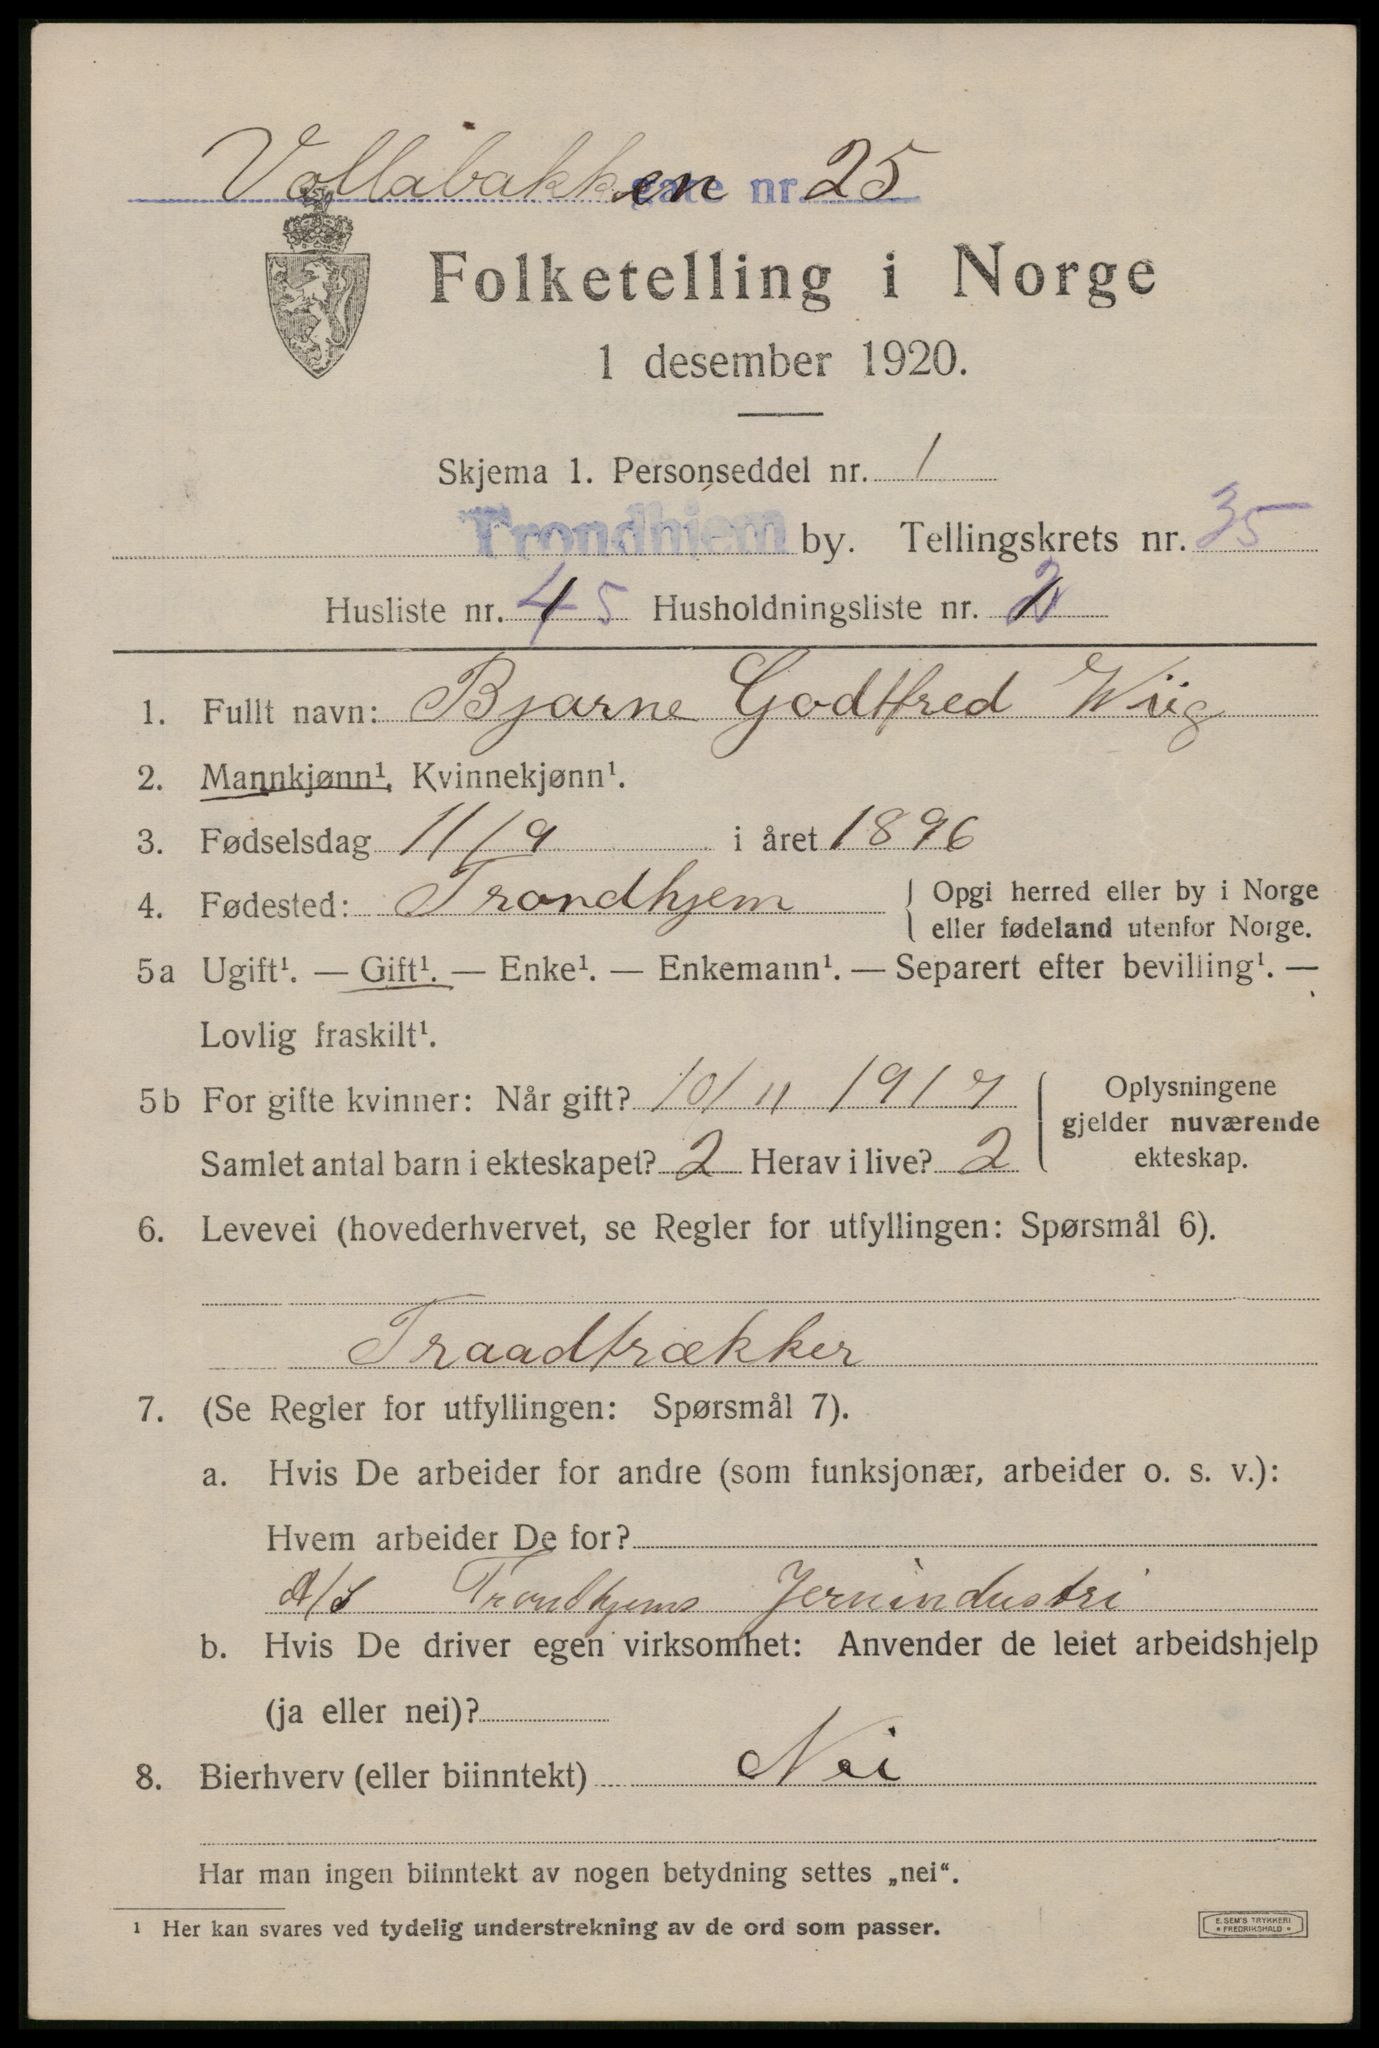 Vollabakken gate nr. 25
Folketelling i Norge
1 desember 1920.
Skjema 1. Personseddel nr. 1
Trondhjem by. Tellingskrets nr. 35
Husliste nr. 45 Husholdningsliste nr. 2
1. Fullt navn: Bjarne Godtfred Wiig
2. Mannkjønn¹, Kvinnekjønn¹.
3. Fødselsdag 11/9 i året 1896
4. Fødested: Trondhjem { Opgi herred eller by i Norge
eller fødeland utenfor Norge.
5a Ugift¹. — Gift¹. — Enke¹. — Enkemann¹. — Separert efter bevilling¹. —
Lovlig fraskilt¹.
5b For gifte kvinner: Når gift? 10/11 1917
Samlet antal barn i ekteskapet? 2 Herav i live? 2
Oplysningene
gjelder nuværende
ekteskap.
6. Levevei (hovederhvervet, se Regler for utfyllingen: Spørsmål 6).
Traadtrækker
7. (Se Regler for utfyllingen: Spørsmål 7).
a. Hvis De arbeider for andre (som funksjonær, arbeider o. s. v.):
Hvem arbeider De for?
A/S Trondhjems Jernindustri
b. Hvis De driver egen virksomhet: Anvender de leiet arbeidshjelp
(ja eller nei)?
8. Bierhverv (eller biinntekt) Nei
Har man ingen biinntekt av nogen betydning settes „nei“.
¹ Her kan svares ved tydelig understrekning av de ord som passer.
E. SEM'S TRYKKERI
• FREDRIKSHALD •